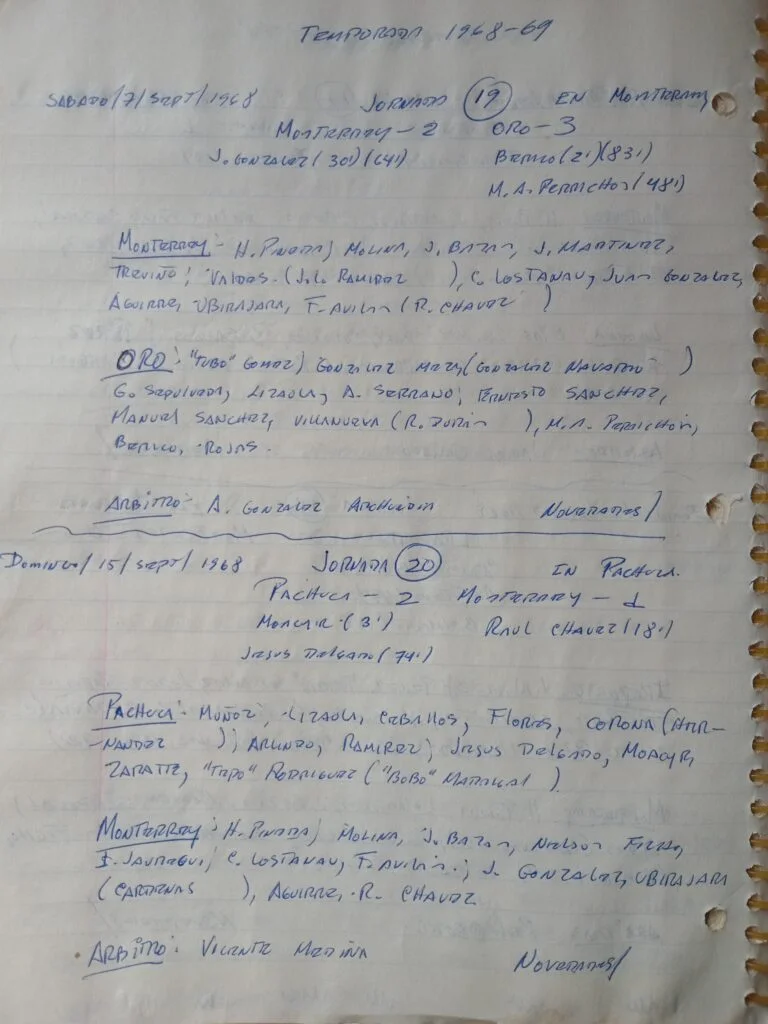 TEMPORADA 1968-69
SABADO/7/SEPT/1968 JORNADA 19 EN MONTERREY
MONTERREY - 2 ORO - 3
J. GONZALEZ (30') (64') BERICO (2') (83')
M. A. PERRICHON (48')
MONTERREY - H. PINEDA; MOLINA, J. BAZAN, J. MARTINEZ,
TREVIÑO; VALDES. (J. L. RAMIREZ ), C. LOSTANAU, JUAN GONZALEZ,
AGUIRRE, UBIRAJARA, F. AVILAN (R. CHAVEZ )
ORO: "TUBO" GOMEZ; GONZALEZ (GONZALEZ NAVARRO )
G. SEPULVEDA, LIZAOLA, A. SERRANO; ERNESTO SANCHEZ,
MANUEL SANCHEZ, VILLANUEVA (R. DURAN ), M. A. PERRICHON,
BERICO, ROJAS.
ARBITRO - A. GONZALEZ ARCHUNDIA NOVEDADES/
DOMINGO/15/SEPT/1968 JORNADA 20 EN PACHUCA.
PACHUCA - 2 MONTERREY - 1
MOACYR (3') RAUL CHAVEZ (18')
JESUS DELGADO (74')
PACHUCA - MUÑOZ; LIZAOLA, CEBALLOS, FLORES, CORONA (HER-
-NANDEZ ); ARLINDO, RAMIREZ; JESUS DELGADO, MOACYR,
ZARATE, "TEPO" RODRIGUEZ ("BOBO" MADRIGAL)
MONTERREY: H. PINEDA; MOLINA, J. BAZAN, NIELSEN
I. JAUREGUI; C. LOSTANAU, F. AVILAN.; J. GONZALEZ, UBIRAJARA
(CARDENAS ), AGUIRRE, R. CHAVEZ
ARBITRO: VICENTE MEDINA NOVEDADES/